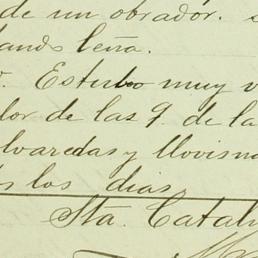 de un obrador. s
tando leña.
. Estubo muy v
lor de las 9. de la
lvaredas y llovisna
os los dias
Sta. Catal